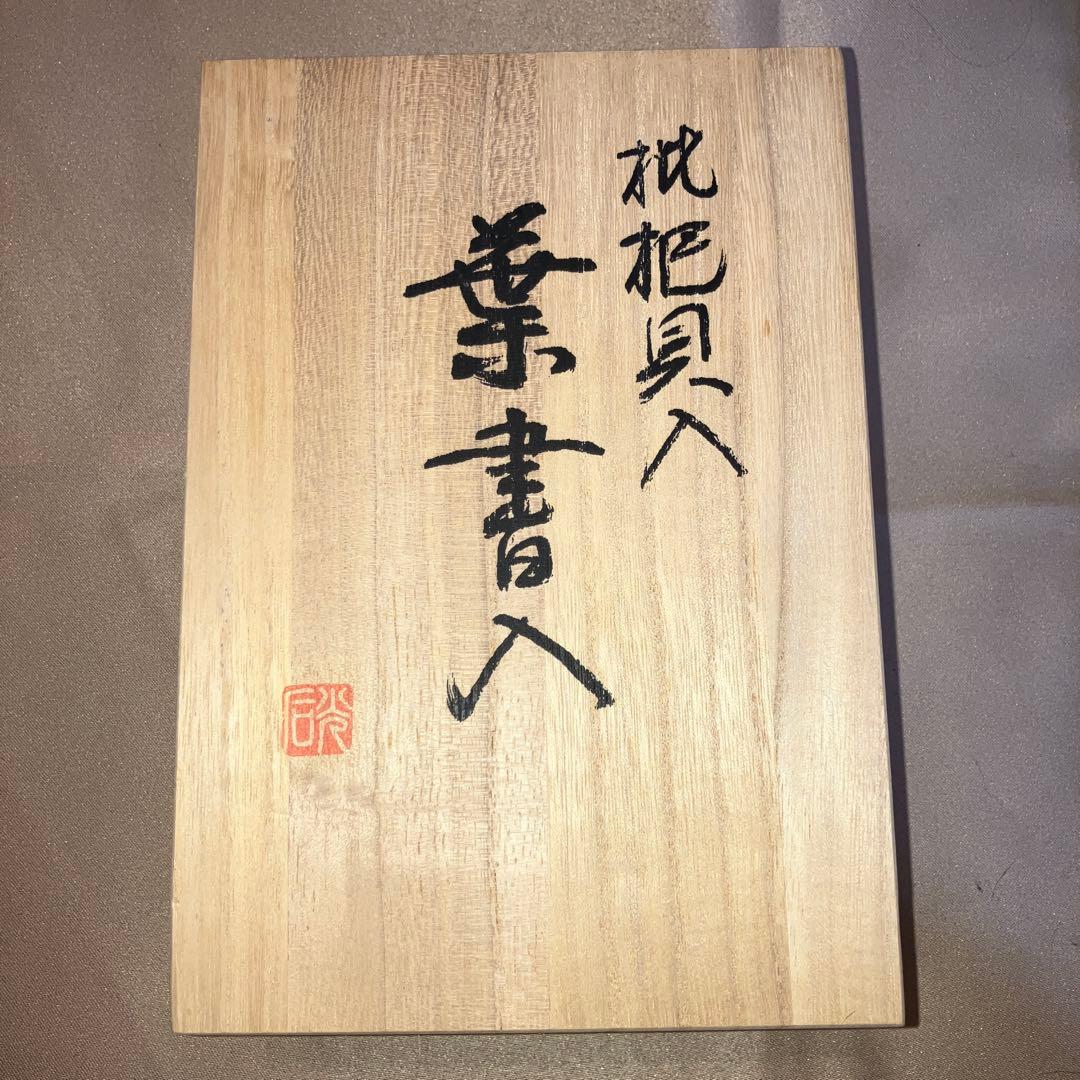 枇杷貝入
葉書入